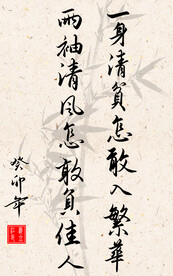 一身清貧怎敢入繁華
兩袖清風怎敢負佳人
癸卯年